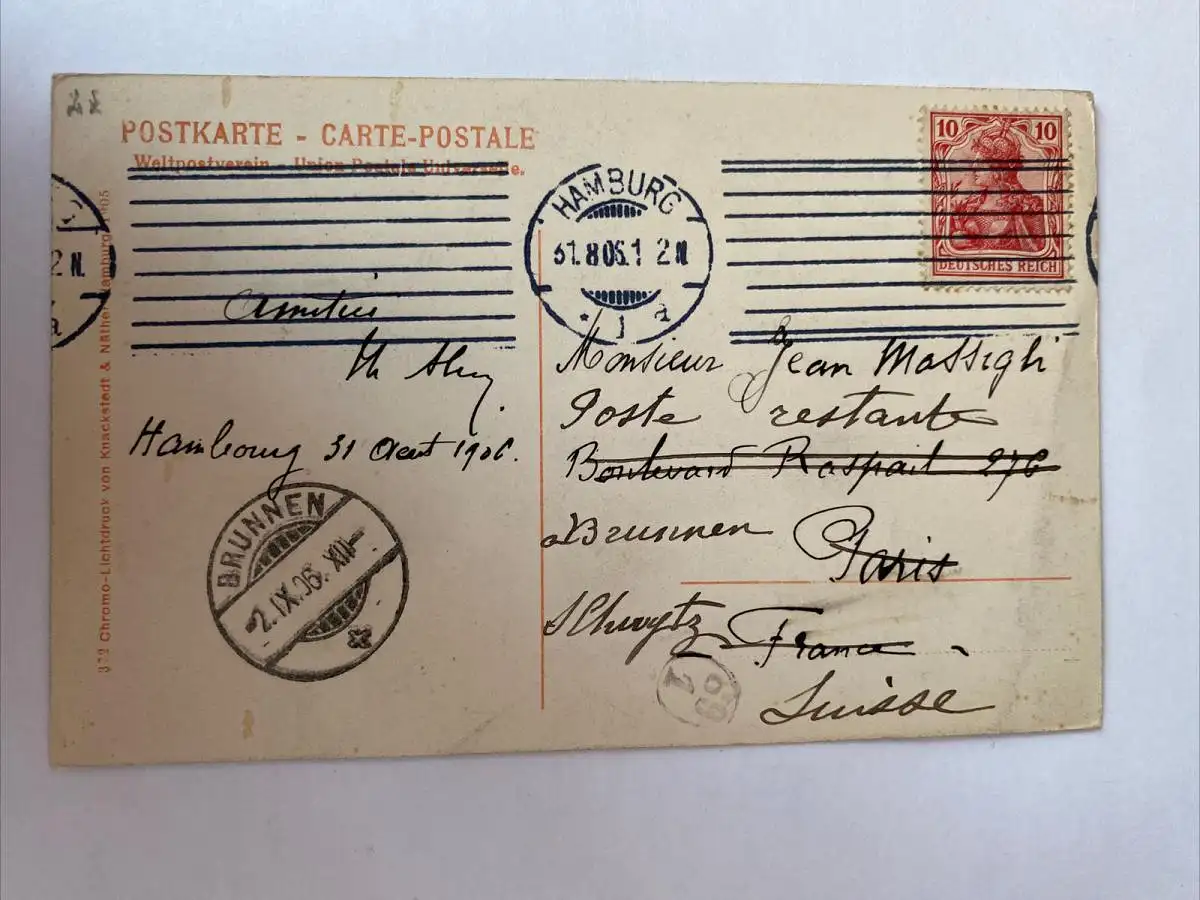 POSTKARTE - CARTE-POSTALE
Weltpostverein - Union Postale Universelle.
10 10
DEUTSCHES REICH
HAMBURG
31.8.06.1 2N.
* 1 a
2N.
a
Amitiés
Hambourg 31 Aout 1906.
Monsieur Jean Massigli
Poste restante
Boulevard Raspail 276
Brunnen Paris
Schwytz France
Suisse
BRUNNEN
2.IX.06. XII
69
1
372 Chromo-Lichtdruck von Knackstedt & Näther, Hamburg 1905